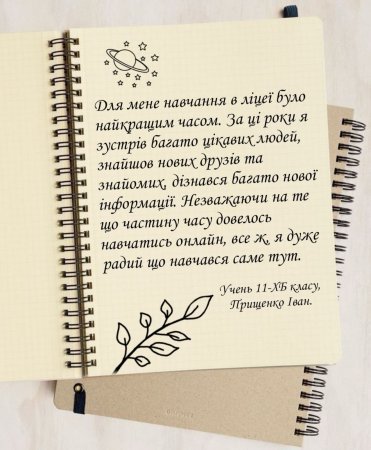 Для мене навчання в ліцеї було
найкращим часом. За ці роки я
зустрів багато цікавих людей,
знайшов нових друзів та
знайомих, дізнався багато нової
інформації. Незважаючи на те
що частину часу довелось
навчатись онлайн, все ж, я дуже
радий що навчався саме тут.
Учень 11-ХБ класу,
Прищенко Іван.